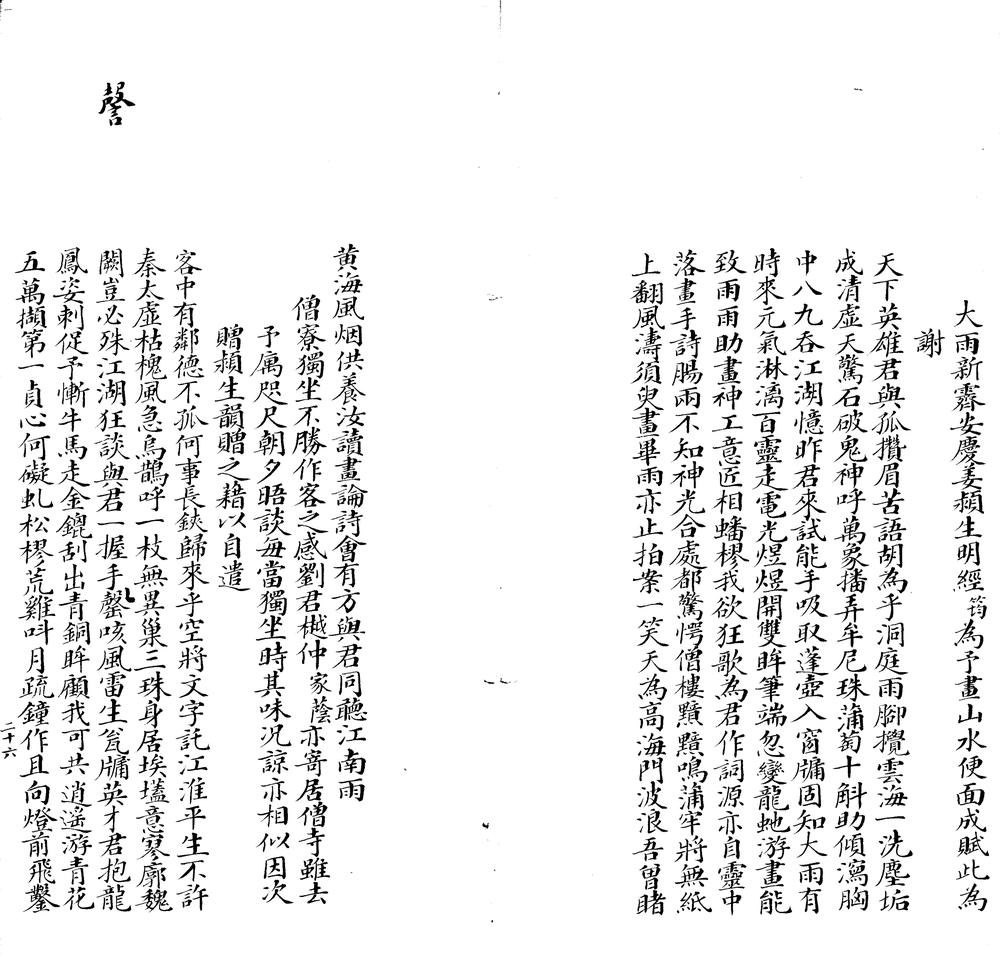 大雨新霽安慶姜頴生明經筠為予畫山水便面成賦此為
謝
天下英雄君與孤攢眉苦語胡為乎洞庭雨腳攪雲海一洗塵垢
成清虛天驚石破鬼神呼萬象播弄牟尼珠蒲萄十斛助傾瀉胸
中八九吞江湖憶昨君來試能手吸取蓬壺入窗牖固知大雨有
時來元氣淋漓百靈走電光煜煜開雙眸筆端忽變龍虵游畫能
致雨雨助畫神工意匠相蟠樛我欲狂歌為君作詞源亦自靈中
落畫手詩腸兩不知神光合處都驚愕僧樓黯黯鳴蒲牢將無紙
上翻風濤須臾畫畢雨亦止拍案一笑天為高海門波浪吾曾睹
黃海風烟供養汝讀畫論詩會有方與君同聽江南雨
僧寮獨坐不勝作客之感劉君樾仲家蔭亦寄居僧寺雖去
予寓咫尺朝夕晤談每當獨坐時其味況諒亦相似因次
贈頴生韻贈之藉以自遣
客中有鄰德不孤何事長鋏歸來乎空將文字託江淮平生不許
秦大虛枯槐風急烏鵲呼一枝無異巢三珠身居埃壒意寥廓魏
闕豈必殊江湖狂談與君一握手罄咳風雷生瓮牖英才君抱龍
鳳姿刺促予慚牛馬走金鎞刮出青銅眸顧我可共逍遙游青花
五萬擷第一貞心何礙虬松樛荒雞呌月疏鐘作且向燈前飛鑿
謦
二十六